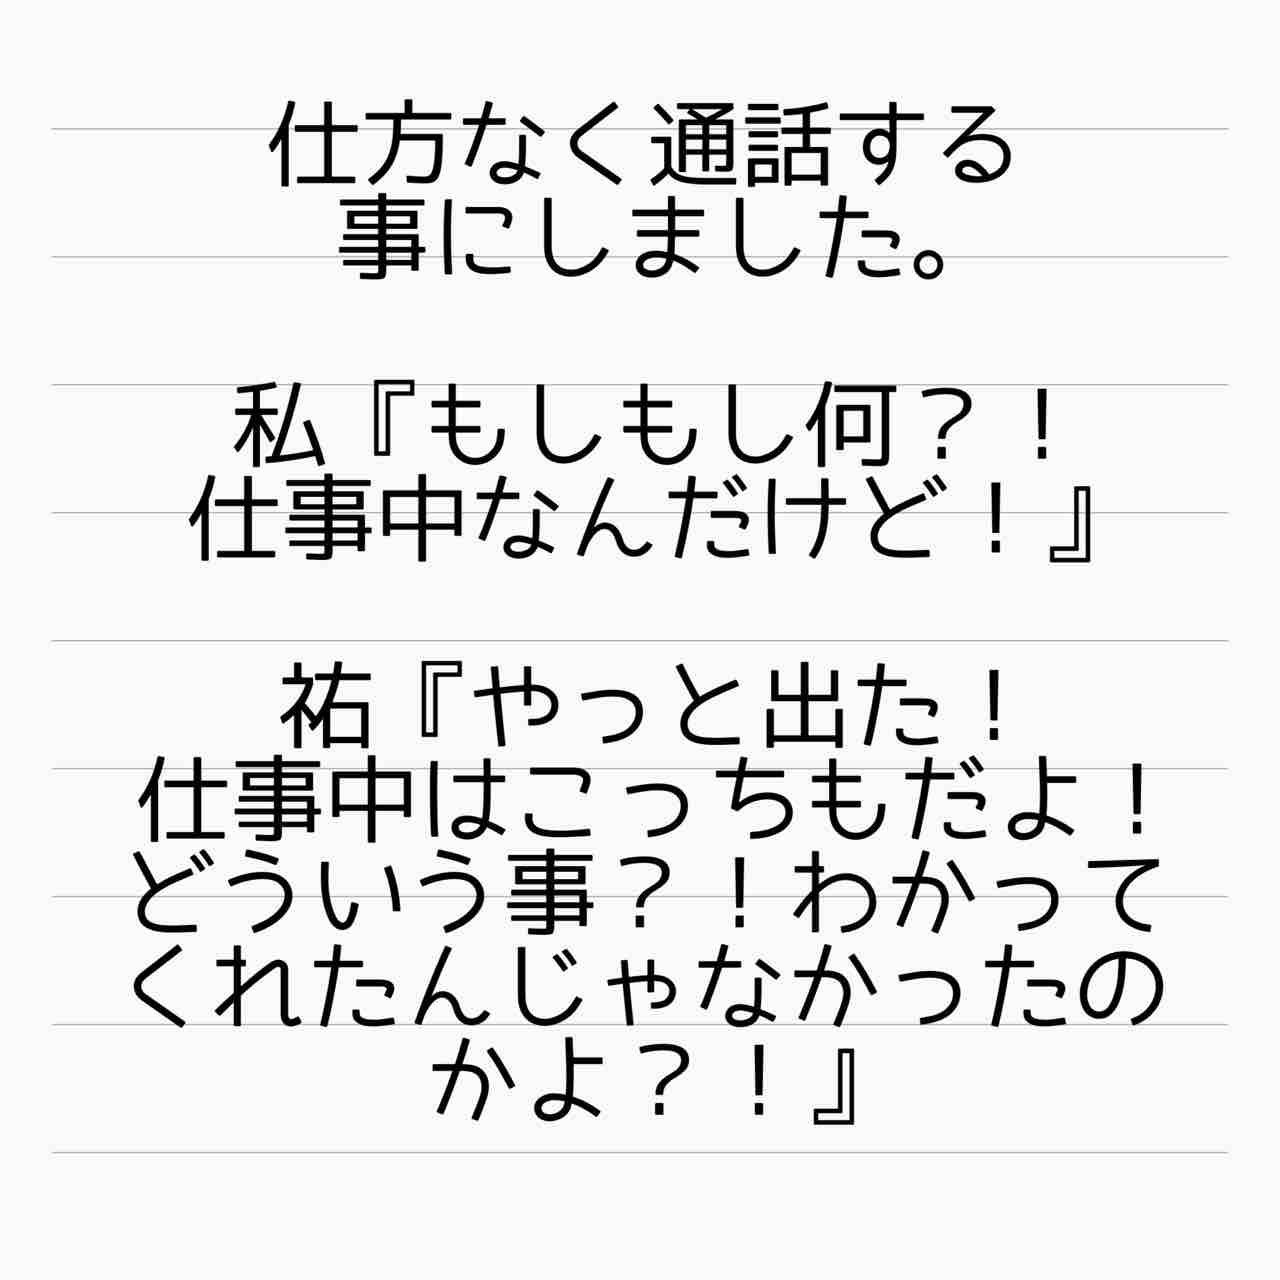 仕方なく通話する
事にしました。
私『もしもし何？！
仕事中なんだけど！』
祐『やっと出た！
仕事中はこっちもだよ！
どういう事？！わかって
くれたんじゃなかったの
かよ？！』